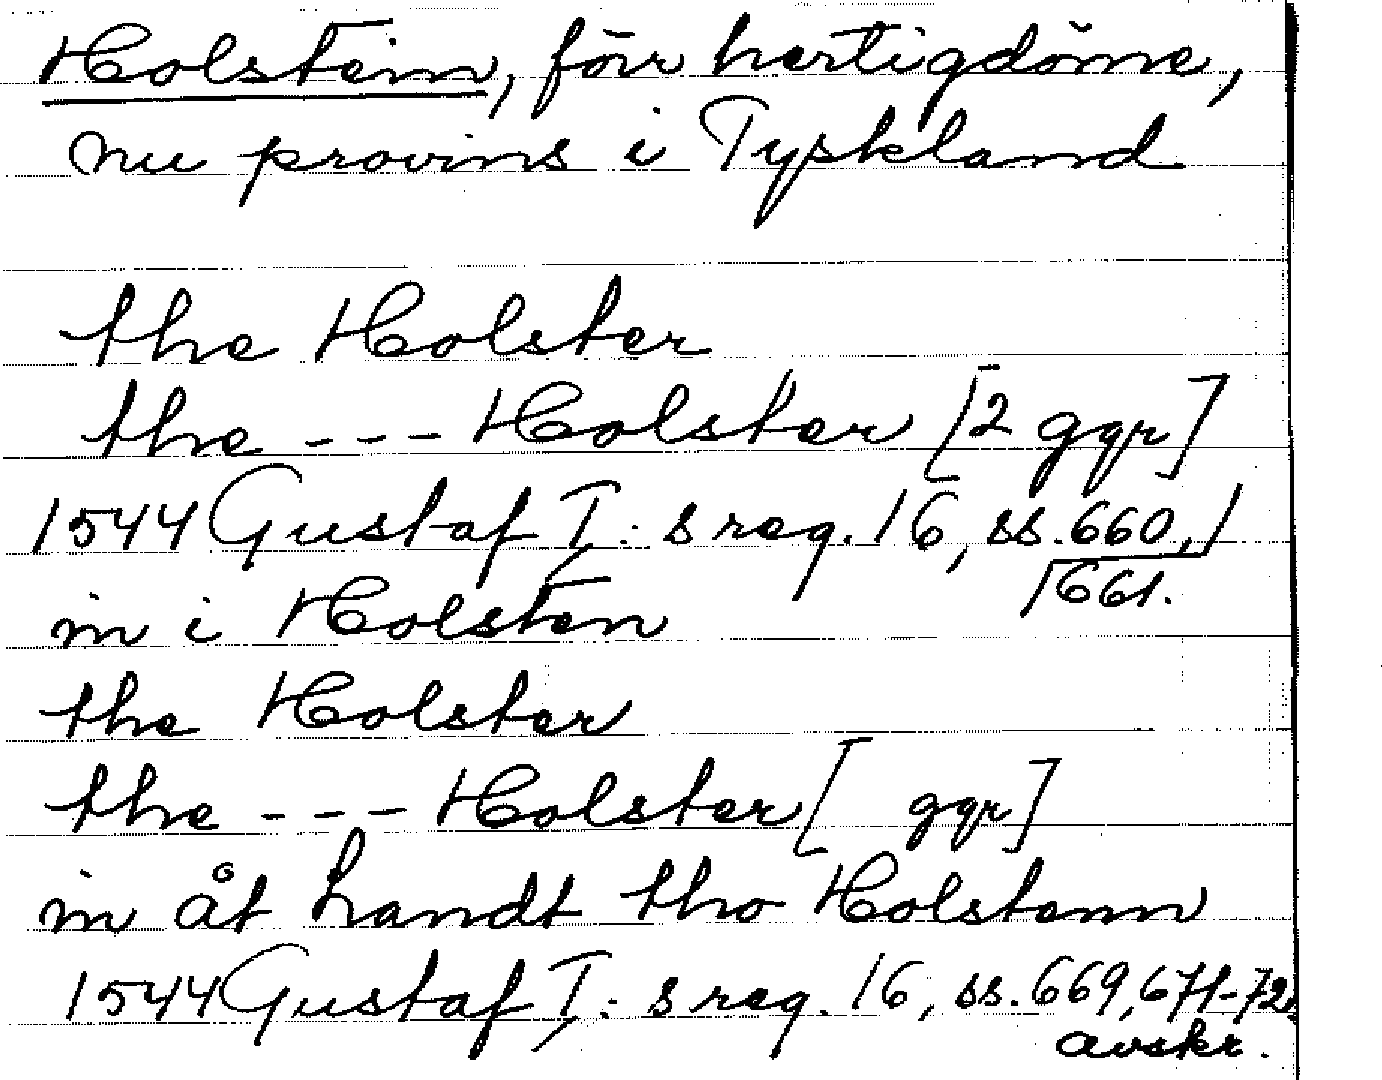 Holstein, förr hertigdöme,
nu provins i Tyskland
the Holster
the --- Holster [2 ggr]
1544 Gustaf I: s reg. 16, ss. 660,
661.
in i Holsten
the Holster
the --- Holster [ ggr]
in åt handt tho Holstenn
1544 Gustaf I: s reg. 16, ss. 669, 671-72.
avskr.